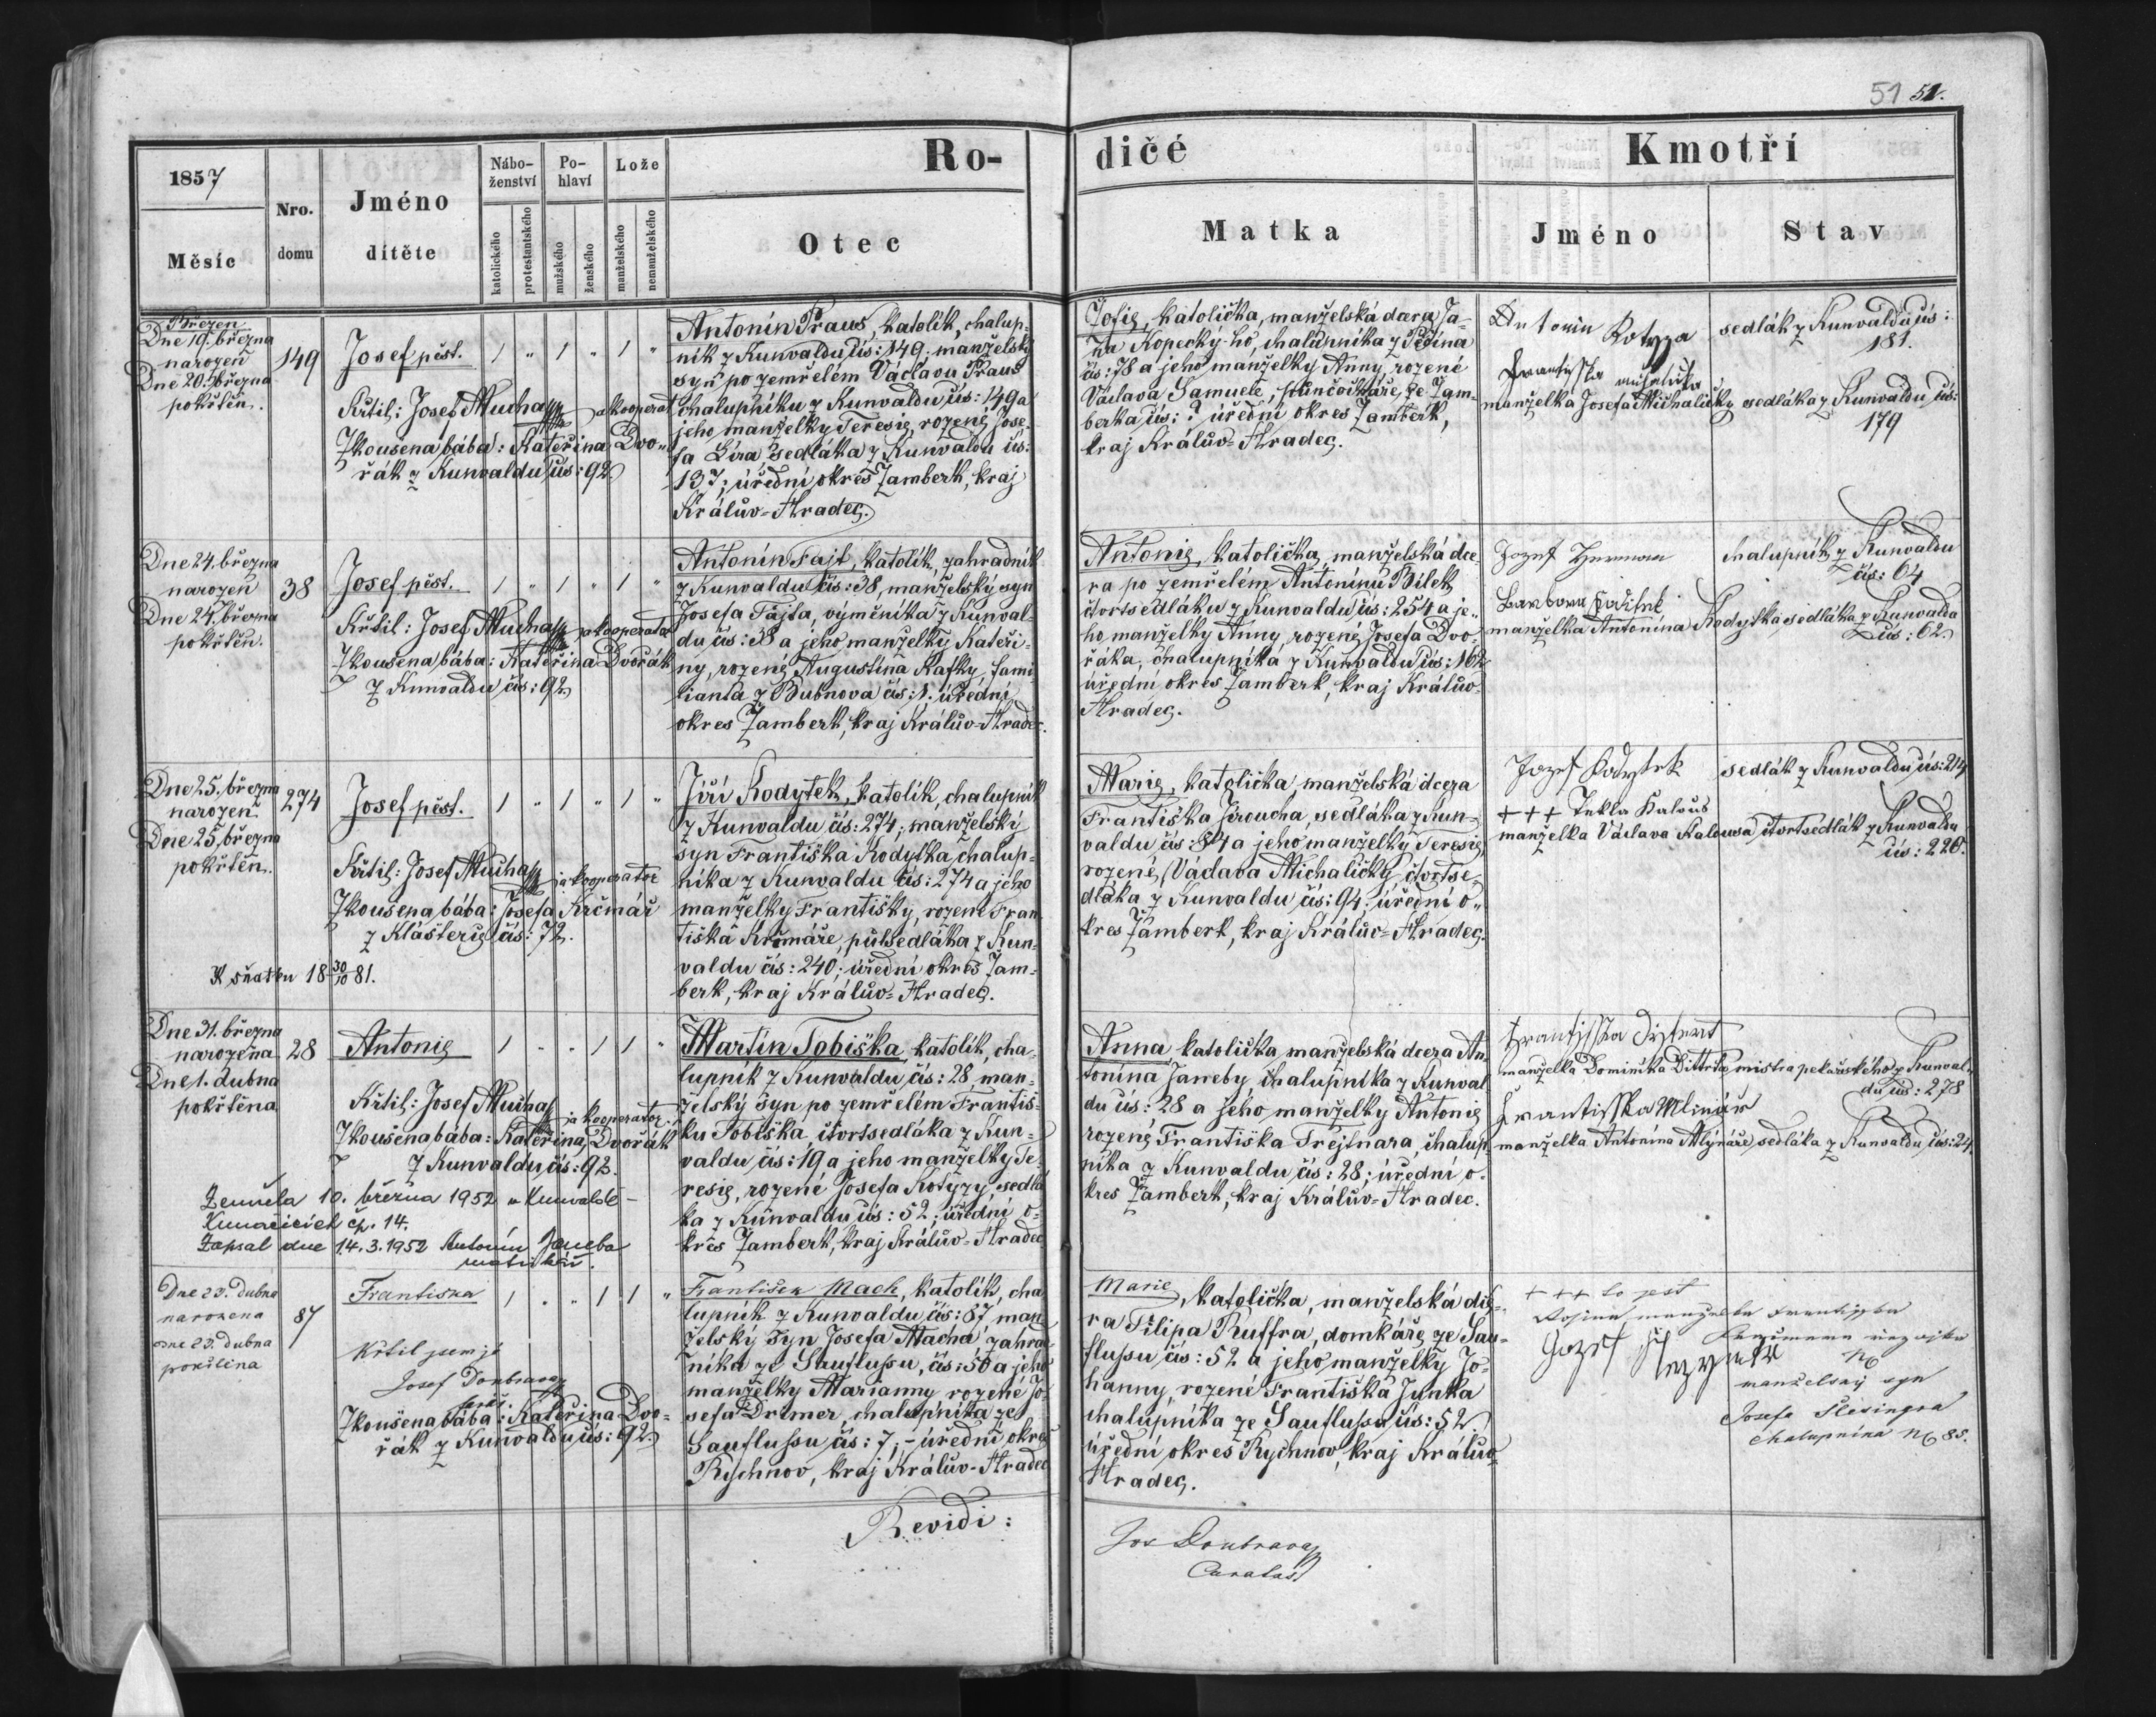 51 51.
1857
Měsíc
Nro.
domu
Jméno
dítěte
Nábo-
ženství
katolického
protestantského
Po-
hlaví
mužského
ženského
Lože
manželského
nemanželského
Ro-
Otec
dičé
Matka
Kmotři
Jméno
Stav
Březen
Dne 19. března
narozen
Dne 20. března
pokřtěn.
149
Josef pěst.
1 " 1 " 1 "
Křtil: Josef Mucha
kooperator
Zkoušená bába: Kateřina Dvo-
řák z Kunvaldu čís: 92
Antonín Praus, katolík, chalup-
ník z Kunvaldu čís: 149; manželský
syn po zemřelém Václavu Praus
chalupníku z Kunvaldu čís: 149 a
jeho manželky Teresie, rozené Jose-
fa Šíra sedláka z Kunvaldu čís:
137; úřední okres Žamberk, kraj
Králův-Hradec.
Žofie, katolička, manželská dcera Ja-
na Kopecký-ho, chalupníka z Pěčína
čís: 78 a jeho manželky Anny, rozené
Václava Samuele, punčocháře, ze Žam-
berka čís: ? úřední okres Žamberk,
kraj Králův-Hradec.
Antonin Kotyza
sedlák z Kunvaldu čís:
181.
Frantisska
manželka Josefa Michaličky sedláka z Kunvaldu čís:
179
Dne 24. března
narozen
Dne 24. března
pokřtěn.
38
Josef pěst.
1 " 1 " 1 "
Křtil: Josef Mucha
kooperator
Zkoušená bába: Kateřina Dvořák
z Kunvaldu čís: 92
Antonín Fajt, katolík, zahradník
z Kunvaldu čís: 38, manželský syn
Josefa Fajta, výměníka z Kunval-
du čís: 38 a jeho manželky Kateři-
ny, rozené Augustina Kafky, fami-
lianta z Bubnova čís: 1. úřední
okres Žamberk, kraj Králův-Hradec.
Antonie, katolička, manželská dce-
ra po zemřelém Antonínu Bílek
čtvrtsedláku z Kunvaldu čís: 254 a je-
ho manželky Anny, rozené Josefa Dvo-
řáka, chalupníka z Kunvaldu čís: 162
úřední okres Žamberk, kraj Králův-
Hradec.
Jozef Herman
chalupník z Kunvaldu
čís: 64
Barbora
manželka Antonína Kodytka, sedláka z Kunvaldu
čís: 62
Dne 25. března
narozen.
Dne 25. března
pokřtěn.
274
Josef pěst.
1 " 1 " 1 "
Křtil: Josef Mucha
kooperator
Zkoušená bába: Josefa Krčmář
z Klášterce čís: 72.
K sňatku 18 30/10 81.
Jiří Kodytek, katolík, chalupník
z Kunvaldu čís: 274; manželský
syn Františka Kodytka, chalup-
níka z Kunvaldu čís: 274 a jeho
manželky Františky, rozené Fran-
tiška Krčmáře, půlsedláka z Kun-
valdu čís: 240; úřední okres Žam-
berk, kraj Králův-Hradec.
Marie, katolička, manželská dcera
Františka Jiroucha, sedláka z Kun-
valdu čís: 84 a jeho manželky Teresie,
rozené, Václava Michaličky, čtvrtse-
dláka z Kunvaldu čís: 94; úřední o-
kres Žamberk, kraj Králův-Hradec.
Jozef Kodytek
sedlák z Kunvaldu čís: 214
+++ Tekla Kalous
manželka Václava Kalousa, čtvrtsedlák z Kunvaldu
čís: 220.
Dne 31. března
narozena
Dne 1. dubna
pokřtěna
28
Antonie
1 " " 1 1 "
Křtil: Josef Mucha
kooperator.
Zkoušená bába: Kateřina Dvořák
z Kunvaldu čís: 92.
Zemřela 10. března 1952 v Kunvaldě-
Kunačicích čp. 14.
Zapsal dne 14.3.1952 Antonín Janeba
matrikář.
Martin Tobiška, katolík, cha-
lupník z Kunvaldu čís: 28, man-
želský syn po zemřelém Františ-
ku Tobiška, čtvrtsedláka z Kun-
valdu čís: 19 a jeho manželky Te-
resie, rozené Josefa Kotyzy, sedlá-
ka z Kunvaldu čís: 52; úřední o-
kres Žamberk, kraj Králův-Hradec
Anna katolička manželská dcera An-
tonína Janeby chalupníka z Kunval-
du čís: 28 a jeho manželky Antonie
rozené Františka Trejtnara, chalup-
níka z Kunvaldu čís: 28; úřední o-
kres Žamberk, kraj Králův-Hradec.
Frantisska
manželka Dominika Dittrta mistra pekařského z Kunval-
du čís: 278
Frantisska Mlinář
manželka Antonína Mlynáře, sedláka z Kunvaldu čís: 24
Dne 23. dubna
narozena
Dne 23. dubna
pokřtina
87
Frantiska
1 " " 1 1 "
Křtil jsem ji
Josef Doubrava
Zkoušená bába: Kateřina Dvo-
řák z Kunvaldu čís: 92
František Mach, katolík, cha-
lupník z Kunvaldu čís: 87, man-
želský syn Josefa Macha, zahrad-
níka ze Sauflussu, čís: 50 a jeho
manželky Marianny rozené Jo-
sefa Drtmer, chalupníka ze
Sauflussu čís: 7; - úřední okres
Rychnov, kraj Králův-Hradec
Marie, katolička, manželská dce-
ra Filipa Ruffra, domkáře, ze Sau-
flussu čís: 52 a jeho manželky Jo-
hanny, rozené Františka Zynka
chalupníka ze Sauflussu čís: 52
úřední okres Rychnov, kraj Králův-
Hradec.
+++ to jest
Rosina, manželka Frantisska
Jozef
manželský syn
Josefa Slesingra
chalupníka N 85.
Revidi:
Jos Doubrava
Curatus